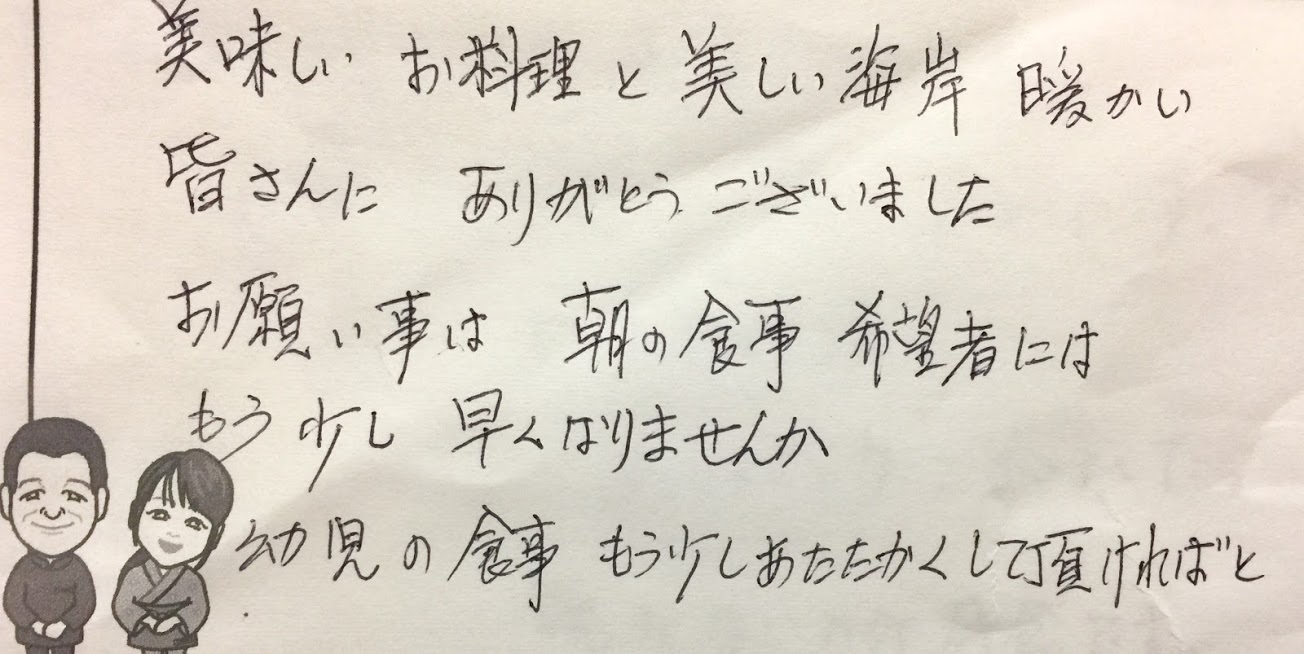 美味しい お料理と美しい海岸 暖かい
皆さんに ありがとうございました
お願い事は 朝の食事 希望者には
もう少し 早くなりませんか
幼児の食事 もう少しあたたかくして頂ければと